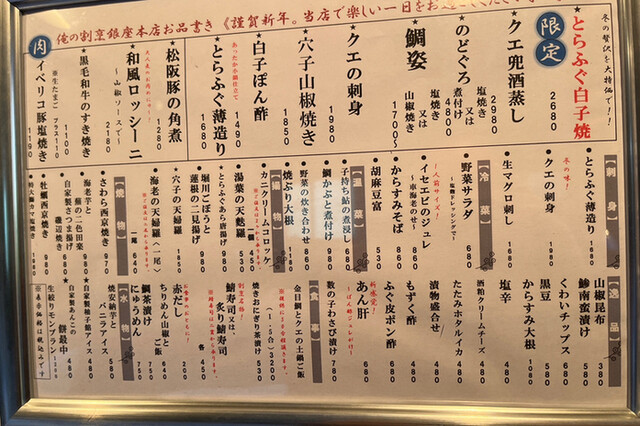 俺の割烹銀座本店お品書き《謹賀新年。当店で楽しい一日をお
冬の贅沢を大特価で!!
限定
★とらふぐ白子焼
2680
★クエ兜酒蒸し
塩焼き 2980
★のどぐろ
煮付け 又は 塩焼き 4800
★鯛姿
煮付け 又は 山椒焼き 1700〜
★クエの刺身
1980
★穴子山椒焼き
1850
★白子ぽん酢
あったか小鍋仕立て
1490
★とらふぐ薄造り
1680
★松阪豚の角煮
1280
★和風ロッシーニ
〜山椒ソースで〜
2180
★黒毛和牛のすき焼き
1100
※生たまご プラス110
★イベリコ豚塩焼き
1190
肉
【刺身】
●とらふぐ薄造り
1680
冬の味!
●クエの刺身
1980
●生マグロ刺し
【冷菜】
●野菜サラダ
〜塩麹ドレッシングで〜
680
一人前サイズ!
●イセエビのジュレ
〜車海老のせ〜
●からすみそば
860
●胡麻豆富
530
【温菜】
●子持ち鮎の煮浸し
680
●鯛かぶと煮付け
980
●野菜の炊き合わせ
860
●焼ぶり大根
980
【揚物】
●カニクリームコロッケ
●湯葉の天麩羅
●とらふぐあら唐揚げ
●堀川ごぼうと
蓮根の二見揚げ
980
●穴子の天麩羅
1850
●海老の天麩羅(一尾)
一尾 640
【焼物】
●さわら西京焼き
980
●海老芋と
蕪の二色田楽
980
●自家製さつま揚げ
磯辺焼き
680
●牡蠣西京焼き
●特大鰤カマ塩焼き
1680
【逸品】
山椒昆布
380
鯵南蛮漬け
580
くわいチップス
680
黒豆
580
からすみ大根
1080
塩辛
480
酒粕クリームチーズ
480
たたみホタルイカ
480
漬物盛合せ
480
もずく酢
480
ふぐ皮ポン酢
680
あん肝
680
【食事】
数の子わさび漬け
780
金目鯛とクエの土鍋ご飯
(1.5合)3200
焼きおにぎり茶漬け
480
鯖寿司又は、
炙り鯖寿司
各450
赤だし
250
ちりめん山椒と
じゃこご飯
540
鯛茶漬け
750
にゅうめん
740
【水物】
焼安納芋と
バニラアイス
580
★自家製柚子餡アイス
480
★自家製あんこの
餅最中
480
生絞りモンブラン
1280
※表示価格は税込みです